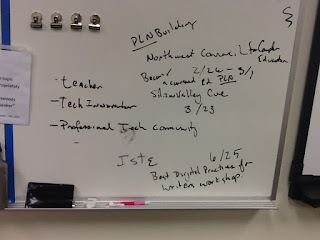 PLN Building
Northwest Council for Computer Education
2/26 - 3/1
Become a connected ed PLN
- teacher
Silicon Valley Cue
- Tech Innovator
3/23
- Professional Tech community
-
IstE 6/25
Best Digital Practices for
writers workshop